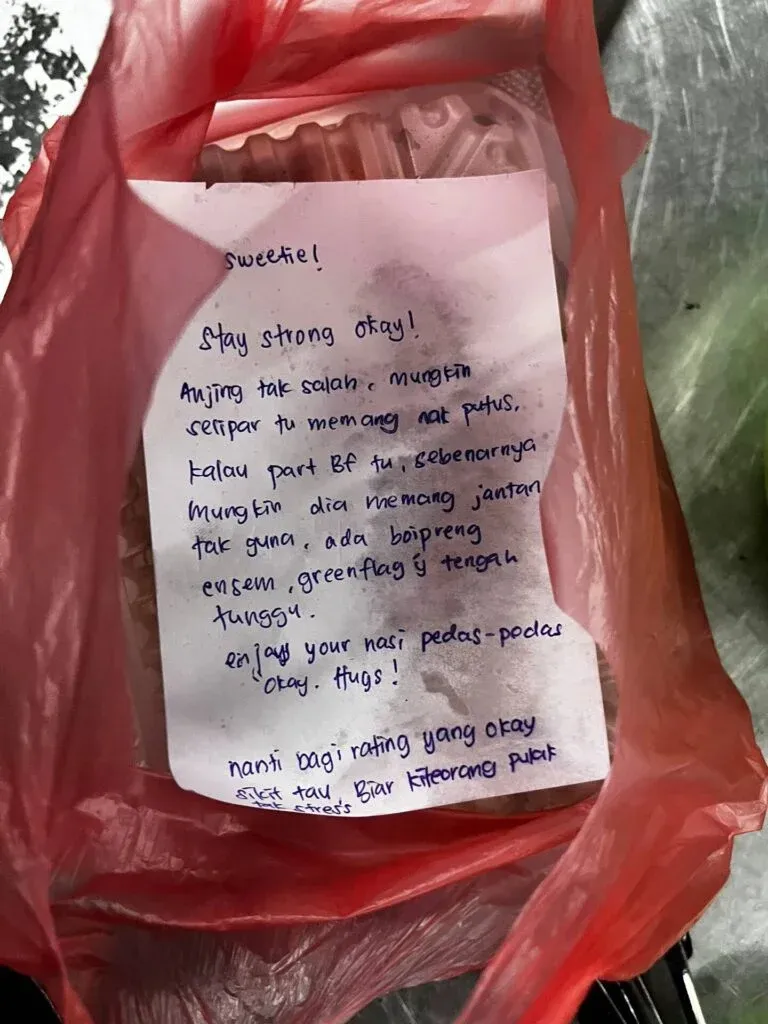 sweetie!
Stay strong okay!
Anjing tak salah. mungkin
selipar tu memang nak putus.
kalau part Bf tu, sebenarnya
mungkin dia memang jantan
tak guna. ada boipreng
ensem, greenflag yg tengah
tunggu.
enjoy your nasi pedas-podas
okay. Hugs!
nanti bagi rating yang okay
sikit tau. Biar kiteorang pulak
tak stress